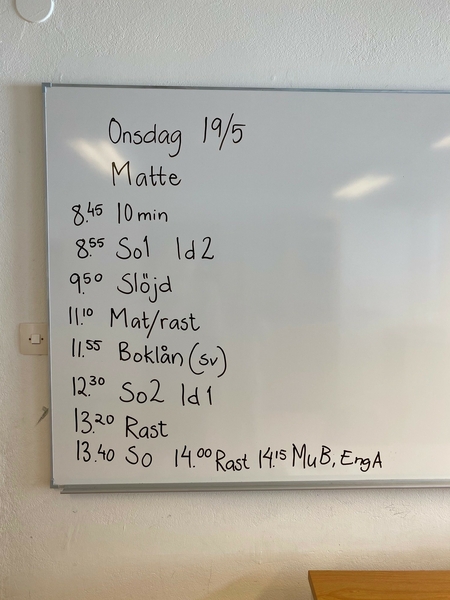 Onsdag 19/5
Matte
8.45 10 min
8.55 So1 Id 2
9.50 Slöjd
11.10 Mat/rast
11.55 Boklån (sv)
12.30 So2 Id 1
13.20 Rast
13.40 So 14.00 Rast 14.15 MuB, EngA